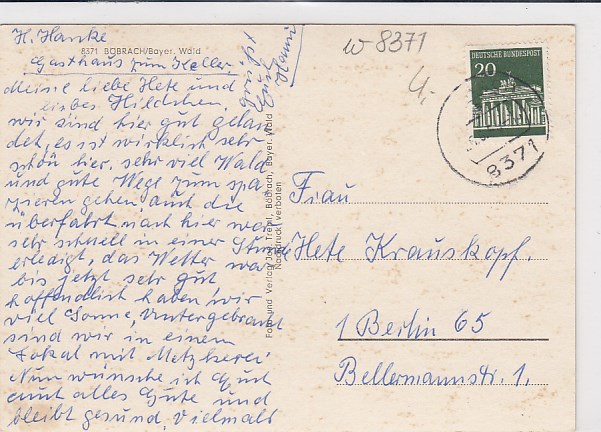 H. Hanke
8371 BÖBRACH/Bayer. Wald
Gasthaus zum Keller
Meine liebe Hete und
liebes Hildchen,
wir sind hier gut gelan
det, es ist wirklich sehr
schön hier, sehr viel Wald
und gute Wege zum spa
zieren gehen auch die
überfahrt nach hier war
sehr schnell in einer Stunde
erledigt, das Wetter war
bis jetzt sehr gut
hoffendlich haben wir
viel Sonne, Untergebracht
sind wir in einem
Lokal mit Metzkerei
Nun wünsche ich Euch
alles Gute und
bleibt gesund, Vielmals
Grüsst
Euch
Hanni
Foto und Verlag Jos. Treml, Böbrach, Bayer. Wald
Nachdruck verboten
w-8371
4,-
DEUTSCHE BUNDESPOST
20
8371
Frau
Hete Krauskopf.
1 Berlin 65
Bellermannstr. 1.